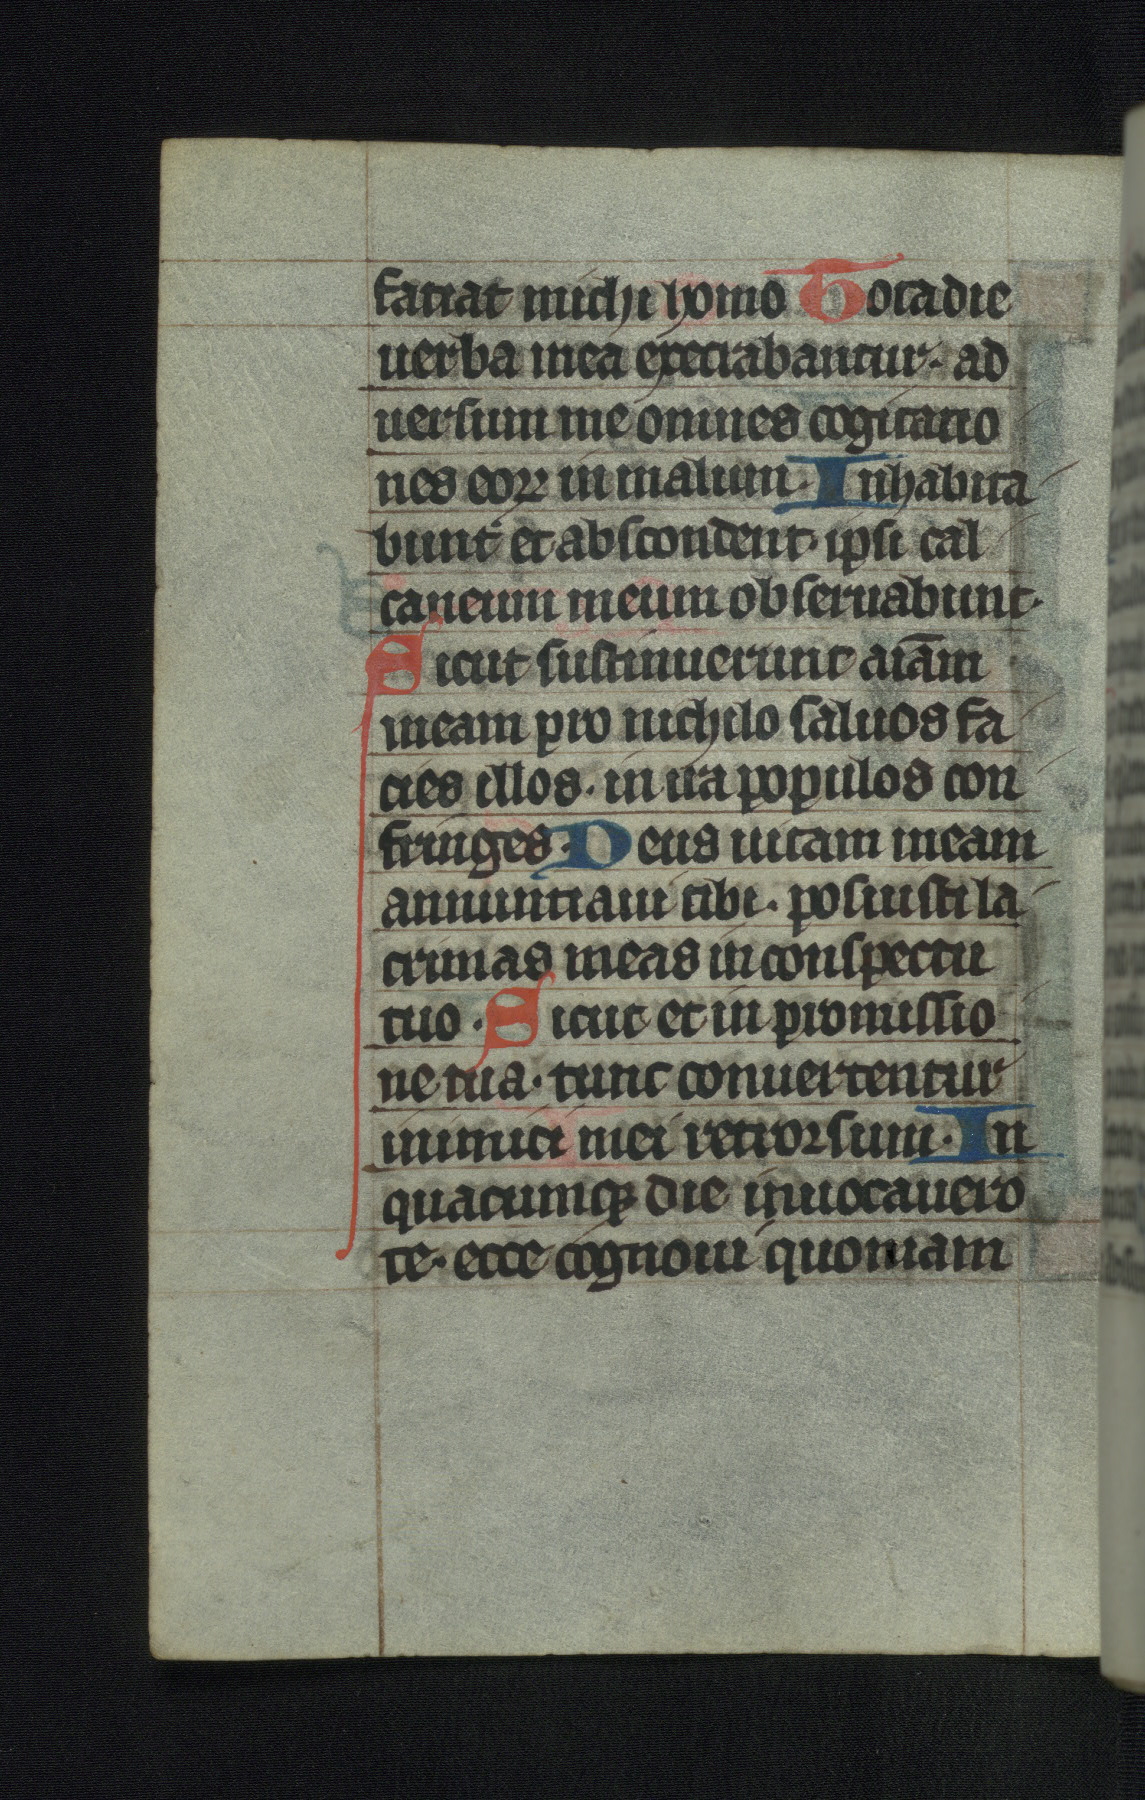 faciat michi homo Tota die
uerba mea execrabantur· ad
uersum me omnes cogitatio
nes eoꝝ in malum· Inhabita
bunt et abscondent· ipsi cal
caneum meum obseruabunt·
Sicut sustinuerunt aīam
meam pro nichilo saluos fa
cies illos· in ira populos con
fringes· Deus uitam meam
annuntiaui tibi· posuisti la
crimas meas in conspectu
tuo· Sicut et in promissio
ne tua· tunc conuertentur
inimici mei retrorsum· In
quacumqꝫ die inuocauero
te· ecce cognoui quoniam